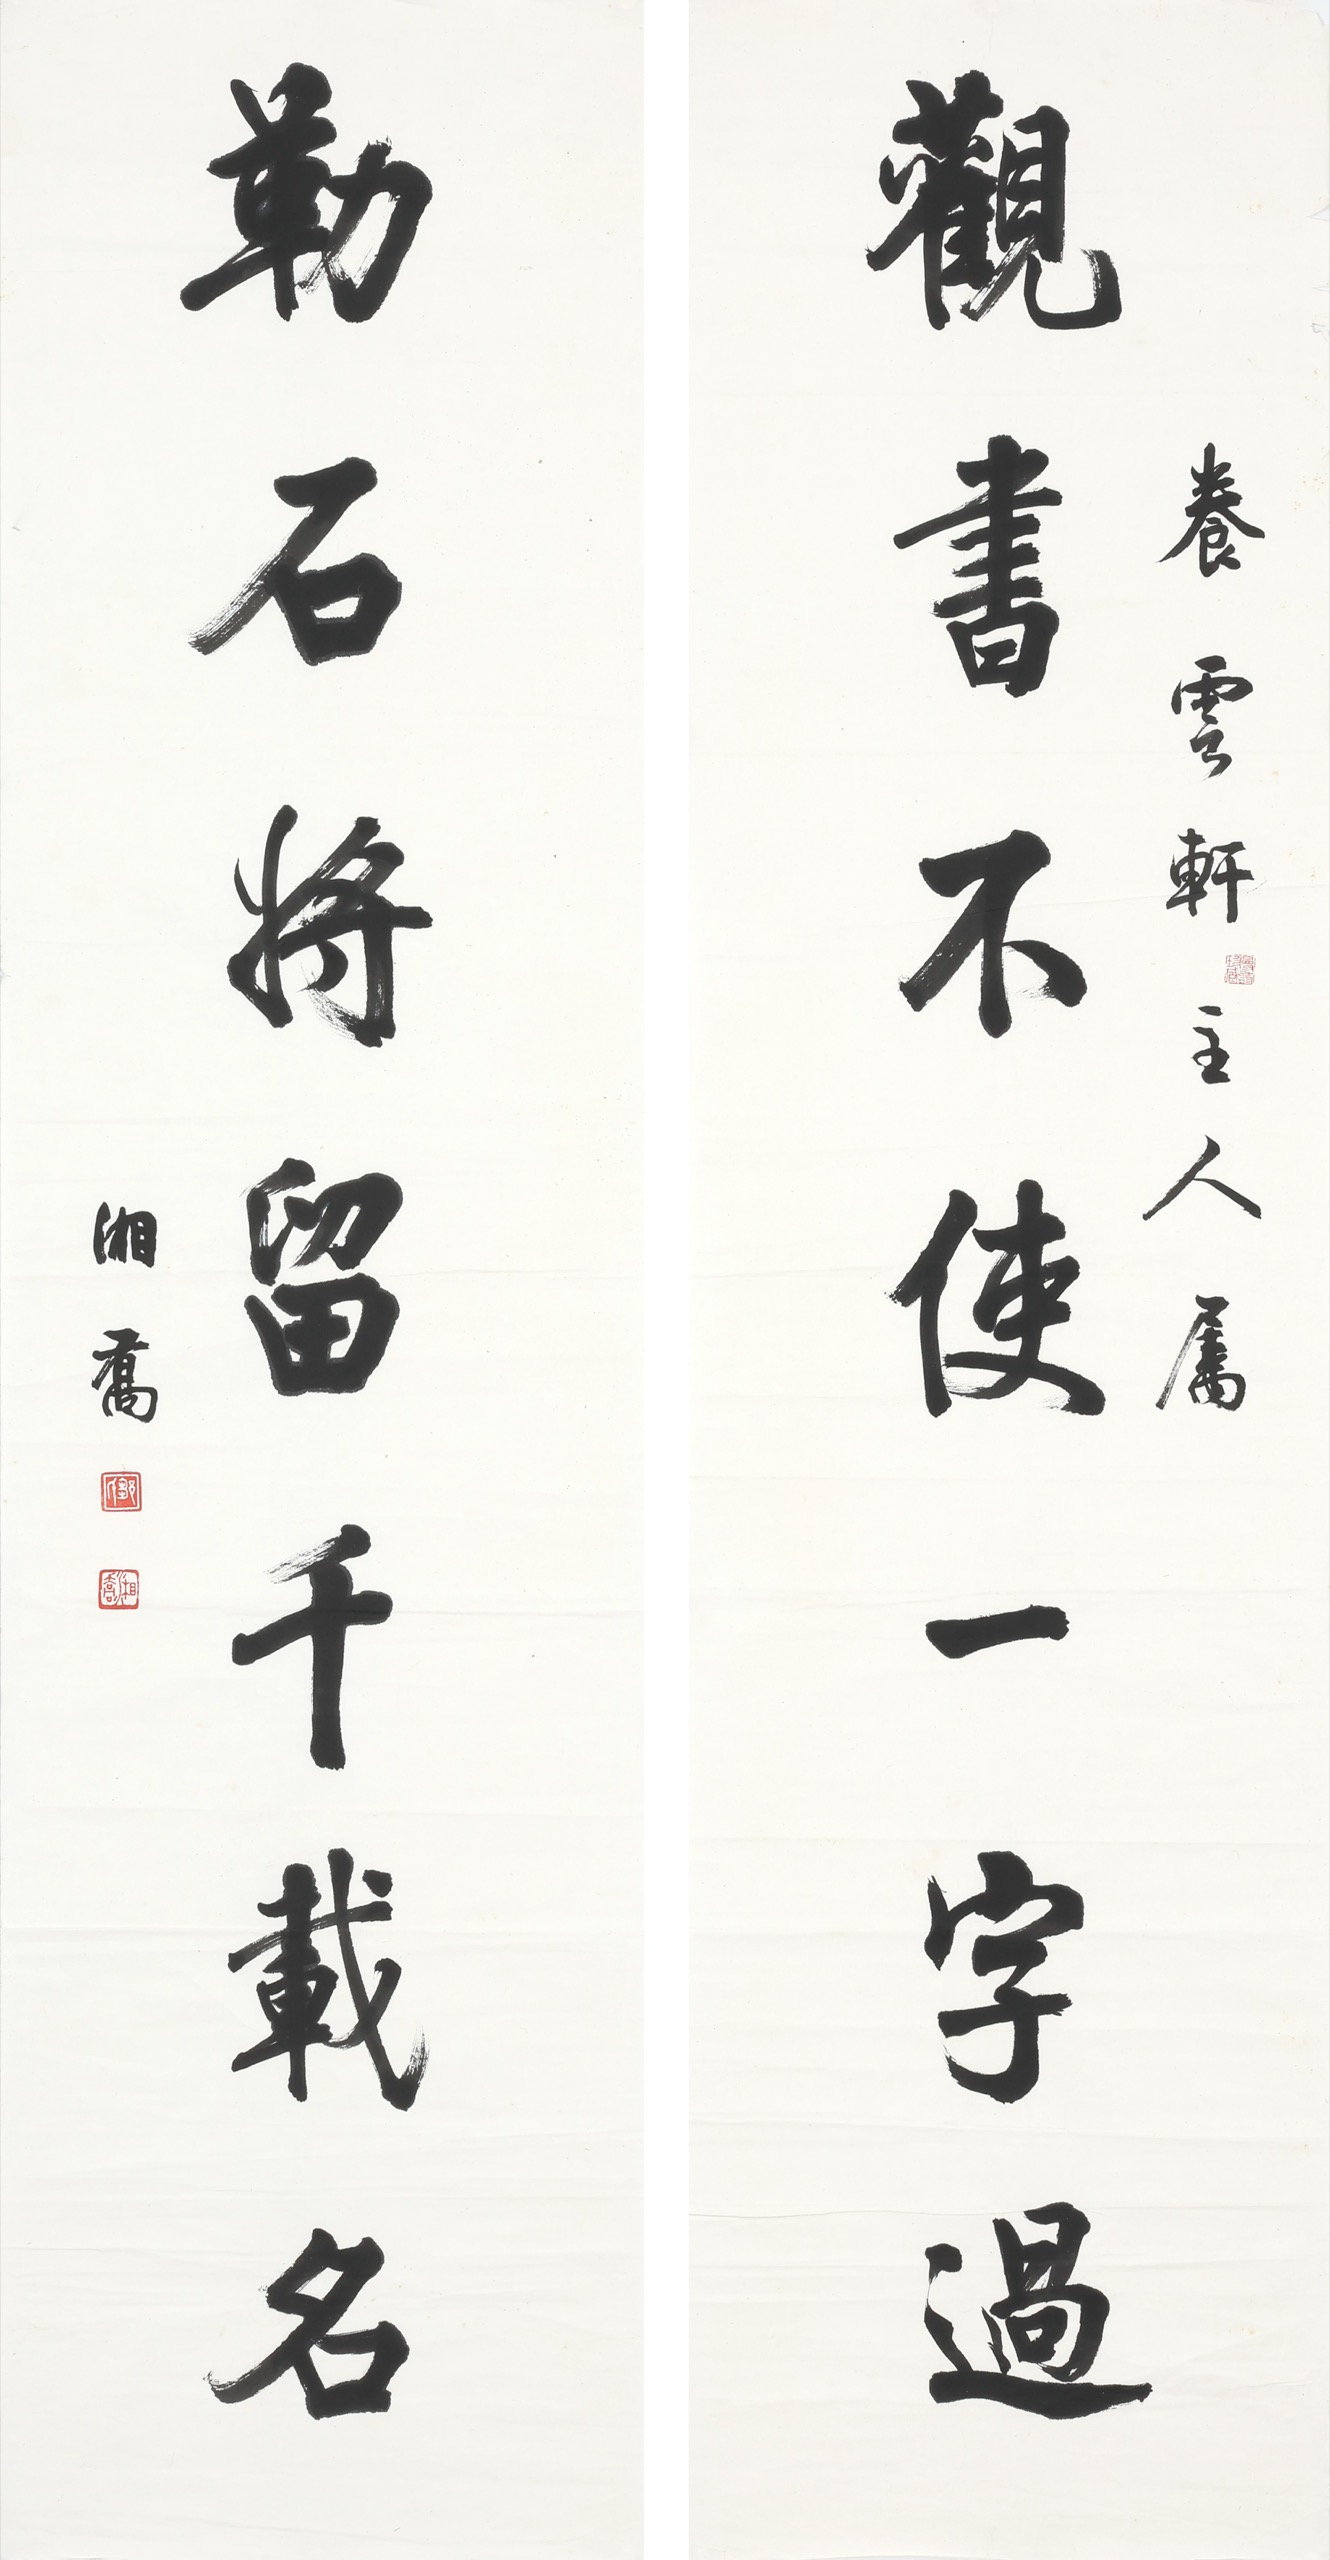 養雲軒主人屬
觀書不使一字過
勒石將留千載名
湘喬